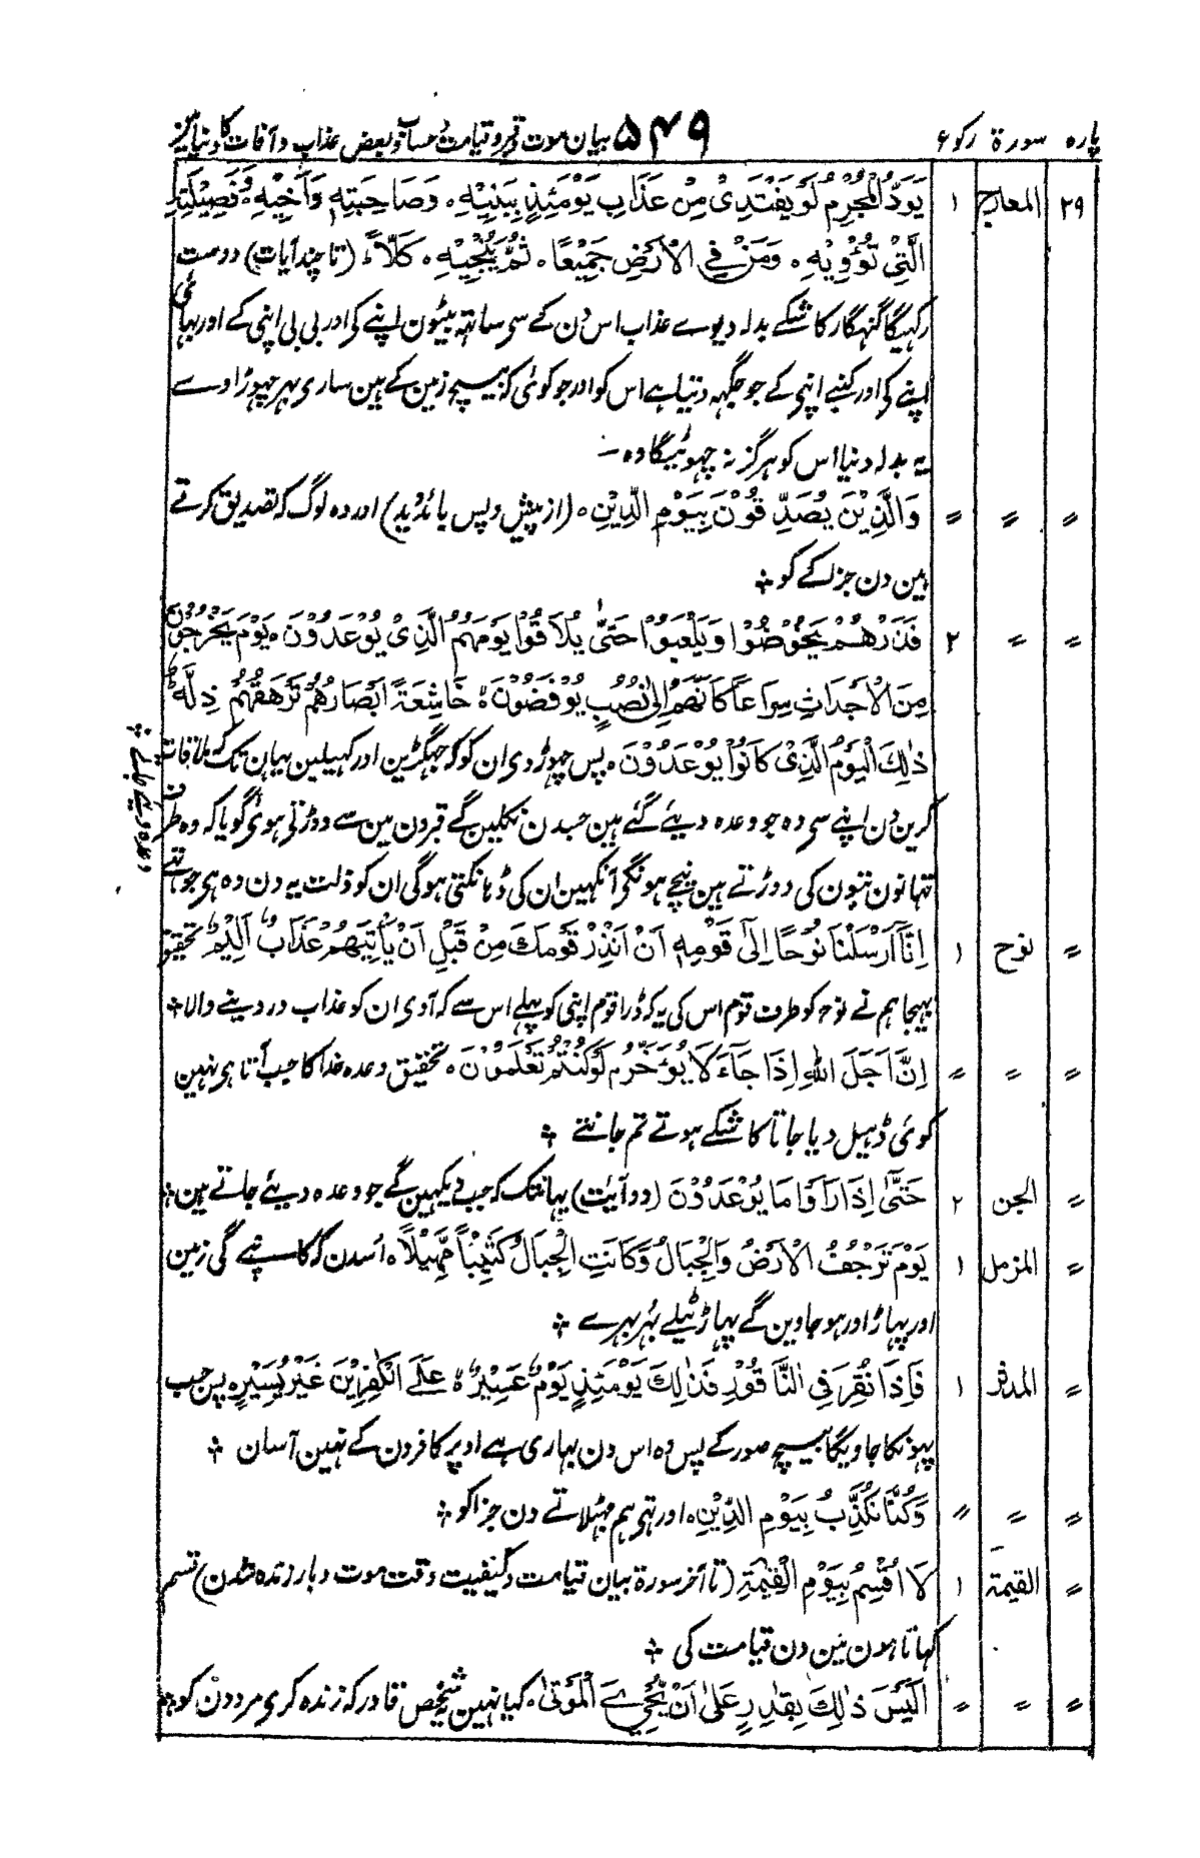 پاره سورة رکوع ۵۴۹ بیان موت و قبر و قیامت و حساب و بعض عذاب و آفات کا دنیا میں
۲۹ المعارج ۱ يَوَدُّ الْمُجْرِمُ لَوْ يَفْتَدِىْ مِنْ عَذَابِ يَوْمَئِذٍ بِبَنِيْهِ ۰ وَصَاحِبَتِهٖ وَاَخِيْهِ ۰ وَفَصِيْلَتِهِ
الَّتِىْ تُؤْوِيْهِ ۰ وَمَنْ فِى الْاَرْضِ جَمِيْعًا ۰ ثُمَّ يُنْجِيْهِ ۰ كَلَّا (تا چند آیات) دوست
رکہیگا گنہگار کاشکے بدلہ دیوے عذاب اس دن کے سی ساتہ بیٹون اپنے کی اور بی بی اپنی کے اور بہائی
اپنے کی اور کنبے اپنی کے جو جگہہ دنیتا ہے اس کو اور جو کوئی کہ بیچ زمین کے ہین ساری پہر چہوڑاوے
یہ بدلہ دنیا اس کو ہرگز نہ چہوٹیگا وہ ۔
〃 〃 〃 وَالَّذِيْنَ يُصَدِّقُوْنَ بِيَوْمِ الدِّيْنِ ۰ (از پیش و پس باید دید) اور وہ لوگ کہ تصدیق کرتے
ہین دن جزا کے کو ؞
〃 〃 ۲ فَذَرْهُمْ يَخُوْضُوْا وَيَلْعَبُوْا حَتّٰى يُلَاقُوْا يَوْمَهُمُ الَّذِىْ يُوْعَدُوْنَ ۰ يَوْمَ يَخْرُجُوْنَ
مِنَ الْاَجْدَاثِ سِرَاعًا كَاَنَّهُمْ اِلٰى نُصُبٍ يُّوْفِضُوْنَ ۰ خَاشِعَةً اَبْصَارُهُمْ تَرْهَقُهُمْ ذِلَّةٌ
ذٰلِكَ الْيَوْمُ الَّذِىْ كَانُوْا يُوْعَدُوْنَ ۰ پس چہوڑ دی ان کو کہ جہگڑین اور کہیلین یہان تک کہ ملاقات
کرین دن اپنے سی وہ جو وعدہ دیئے گئے ہین جسدن نکلین گے قبرون مین سے دوڑتی ہوئی گویا کہ وہ طرف
تہانون بتون کی دوڑتے ہین نیچے ہونگی آنکہین ان کی ڈہانکتی ہوگی ان کو ذلت یہ دن وہ ہی جو تہے
وعدہ دیئے جاتے ؞
〃 نوح ۱ اِنَّا اَرْسَلْنَا نُوْحًا اِلٰى قَوْمِهٖ اَنْ اَنْذِرْ قَوْمَكَ مِنْ قَبْلِ اَنْ يَّاْتِيَهُمْ عَذَابٌ اَلِيْمٌ تحقیق
بہیجا ہم نے نوح کو طرف قوم اس کی یہ کہ ڈرا قوم اپنی کو پہلے اس سے کہ آوی ان کو عذاب درد دینے والا ؞
〃 〃 〃 اِنَّ اَجَلَ اللهِ اِذَا جَآءَ لَا يُؤَخَّرُ لَوْ كُنْتُمْ تَعْلَمُوْنَ ۰ تحقیق وعدہ خدا کا جب آتا ہی نہین
کوئی ڈہیل دیا جاتا کاشکے ہوتے تم جانتے ؞
〃 الجن ۲ حَتّٰى اِذَا رَاَوْا مَا يُوْعَدُوْنَ (دو آیت) یہانتک کہ جب دیکہین گے جو وعدہ دیئے جاتے ہین ؞
〃 المزمل ۱ يَوْمَ تَرْجُفُ الْاَرْضُ وَالْجِبَالُ وَكَانَتِ الْجِبَالُ كَثِيْبًا مَّهِيْلًا ۰ اُسدن کہ کانپے گی زمین
اور پہاڑ اور ہو جاوین گے پہاڑ ٹیلے بُہر بہرے ؞
〃 المدثر ۱ فَاِذَا نُقِرَ فِى النَّاقُوْرِ فَذٰلِكَ يَوْمَئِذٍ يَّوْمٌ عَسِيْرٌ ۰ عَلَى الْكٰفِرِيْنَ غَيْرُ يَسِيْرٍ ۰ پس جب
پہونکا جاویگا بیچ صور کے پس وہ اس دن بہاری ہے اوپر کافرون کے نہین آسان ؞
〃 〃 〃 وَكُنَّا نُكَذِّبُ بِيَوْمِ الدِّيْنِ ۰ اور تہی ہم جہٹلاتے دن جزا کو ؞
〃 القیمة ۱ لَا اُقْسِمُ بِيَوْمِ الْقِيٰمَةِ (تا آخر سورة بیان قیامت و کیفیت وقت موت و باز زندہ شدن) قسم
کہاتا ہون مین دن قیامت کی ؞
〃 〃 〃 اَلَيْسَ ذٰلِكَ بِقٰدِرٍ عَلٰى اَنْ يُّحْىِۦَ الْمَوْتٰى ۰ کیا نہین یہ شخص قادر کہ زندہ کری مردون کو ؞